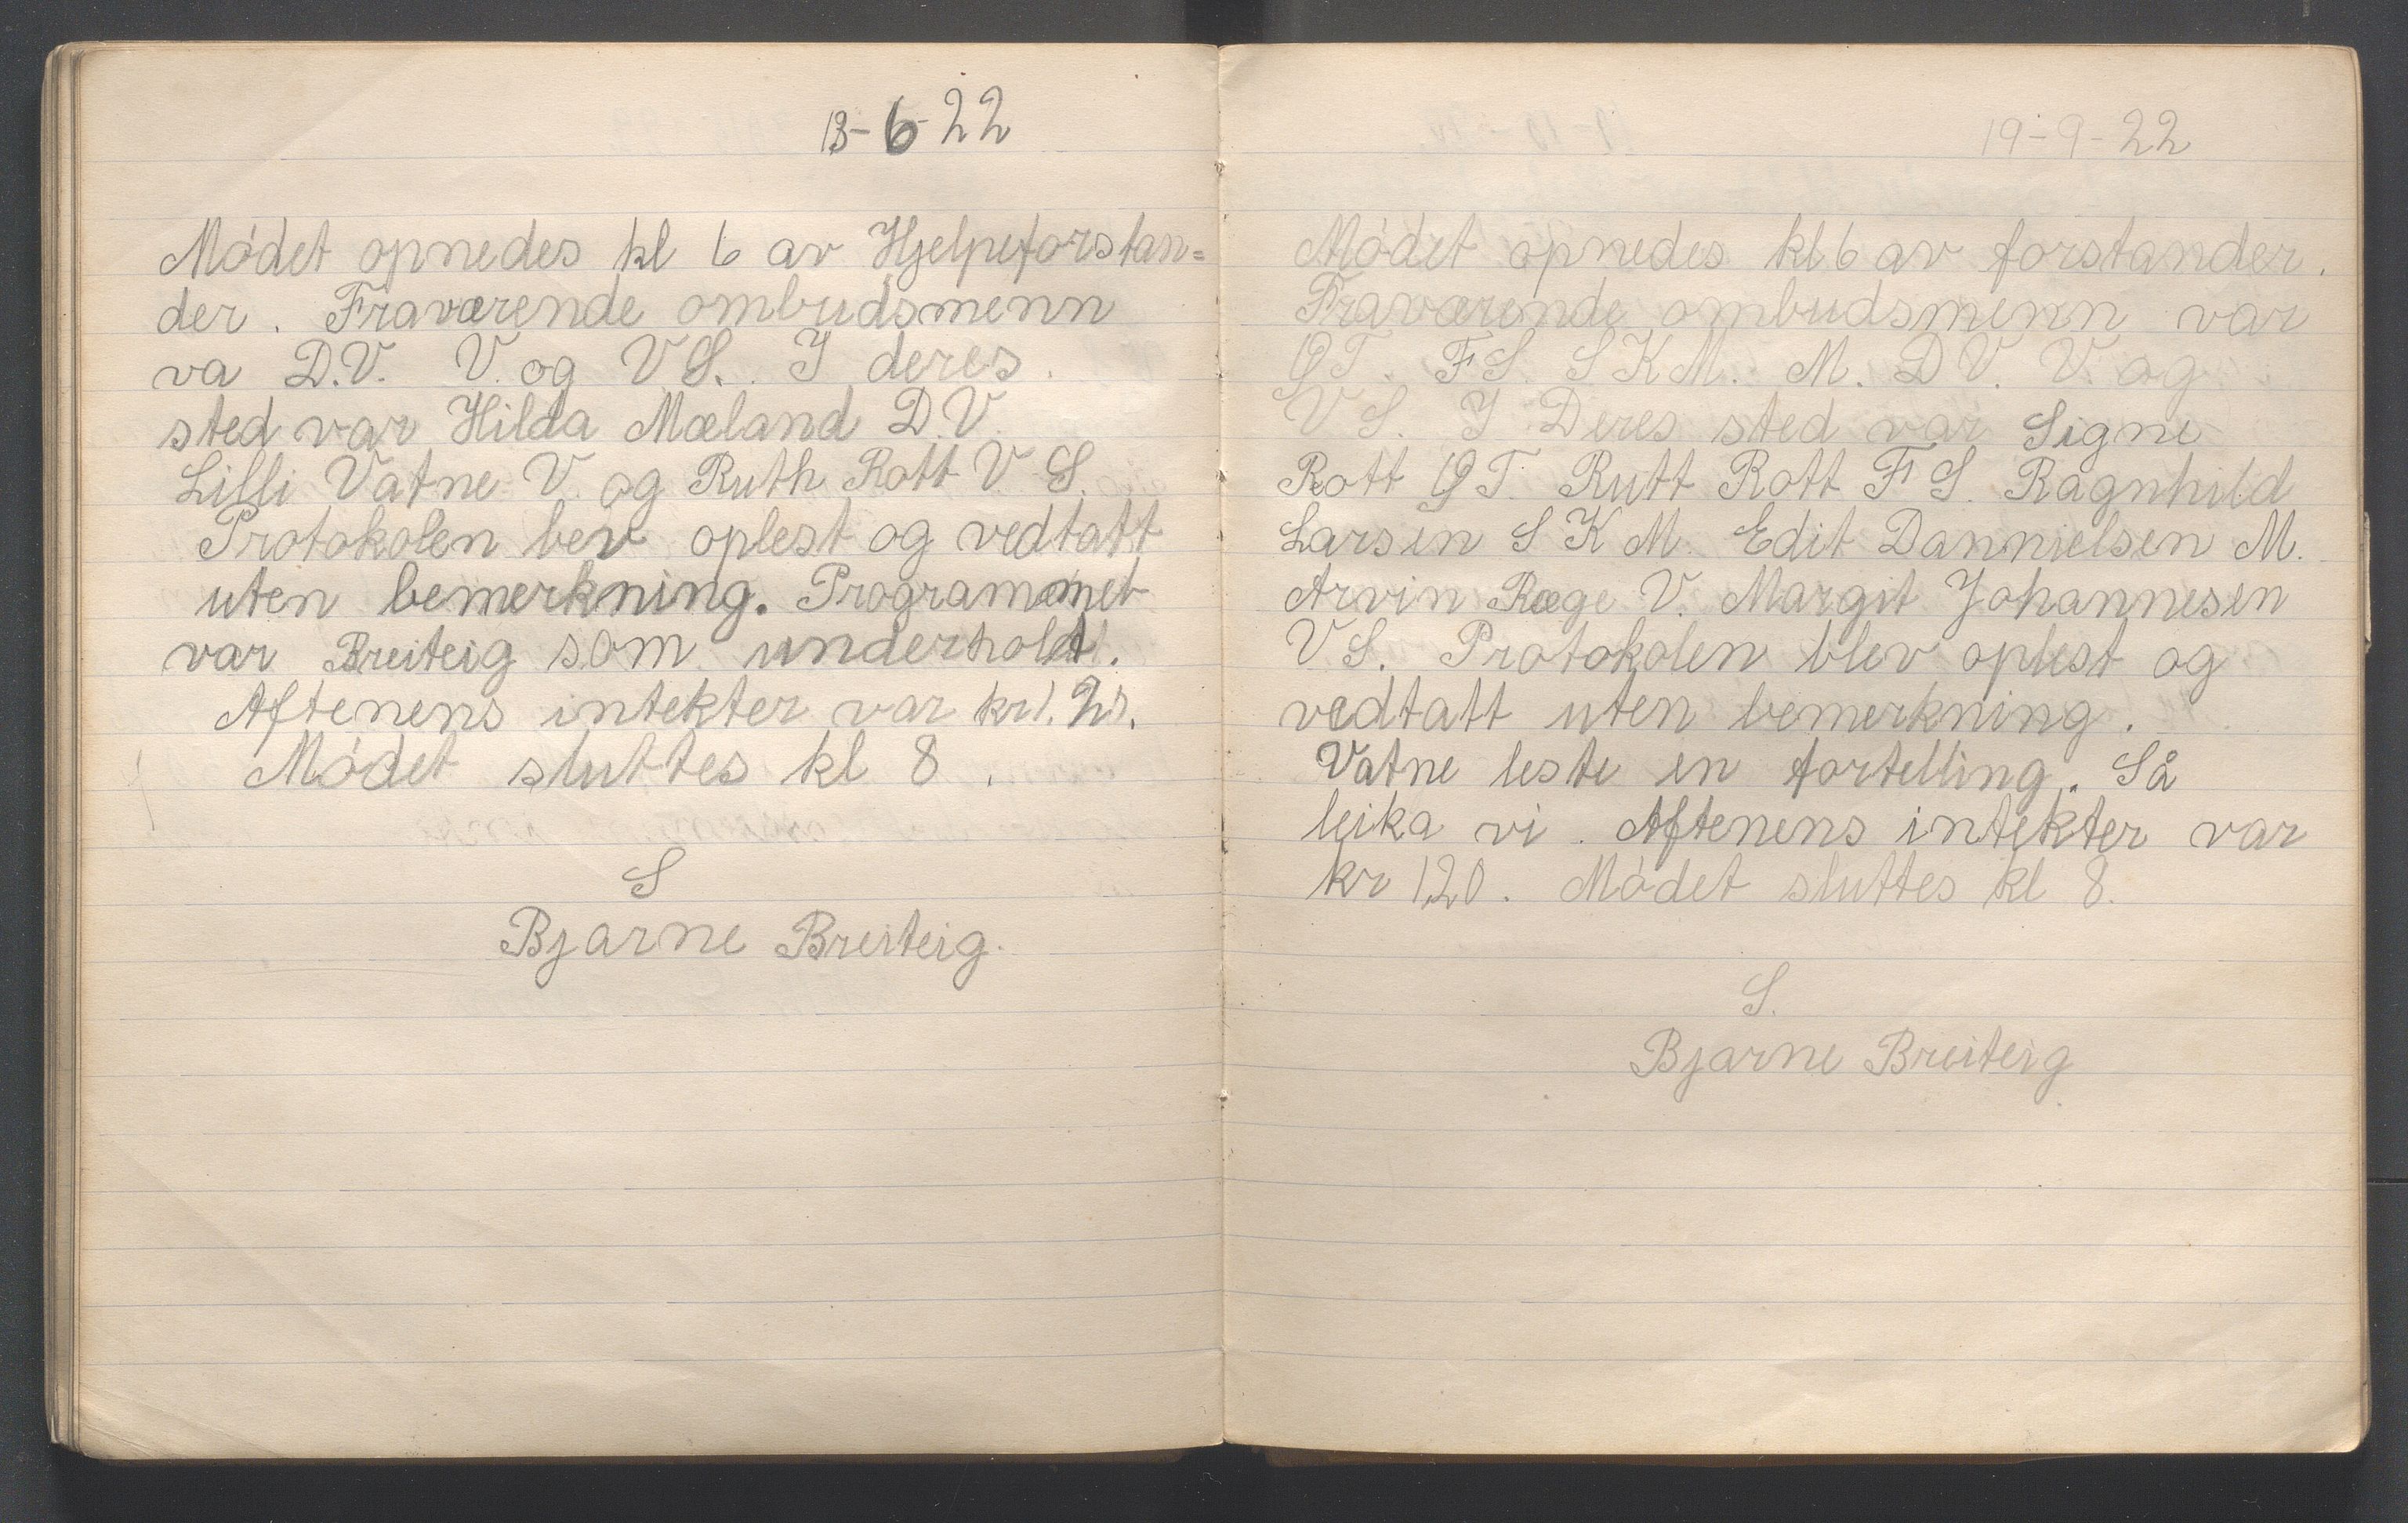 13-6-22
Mødet opnedes kl 6 av Hjelpeforstan=
der. Fraværende ombudsmenn
va D.V. V. og V S. I deres
sted var Hilda Mæland D.V.
Lilli Vatne V. og Ruth Rott V S.
Protokolen bev oplest og vedtatt
uten bemerkning. Programmet
var Breiteig som underholdt.
Aftenens intekter var kr 1.
Mødet sluttes kl 8.
S
Bjarne Breiteig.
19-9-22
Mødet opnedes kl 6 av forstander.
Fraværende ombudsmenn var
GT. FS. SKM. M. DV. V. og
VS. I Deres sted var Signe
Rott GT. Rutt Rott FS. Ragnhild
Larsen S K M. Edit Dannielsen M.
Arvin Ræge V. Margit Johannesen
VS. Protokolen blev oplest og
vedtatt uten bemerkning.
Vatne leste en fortelling. Så
leika vi. Aftenens intekter var
kr 1,20. Mødet sluttes kl 8.
S.
Bjarne Breiteig